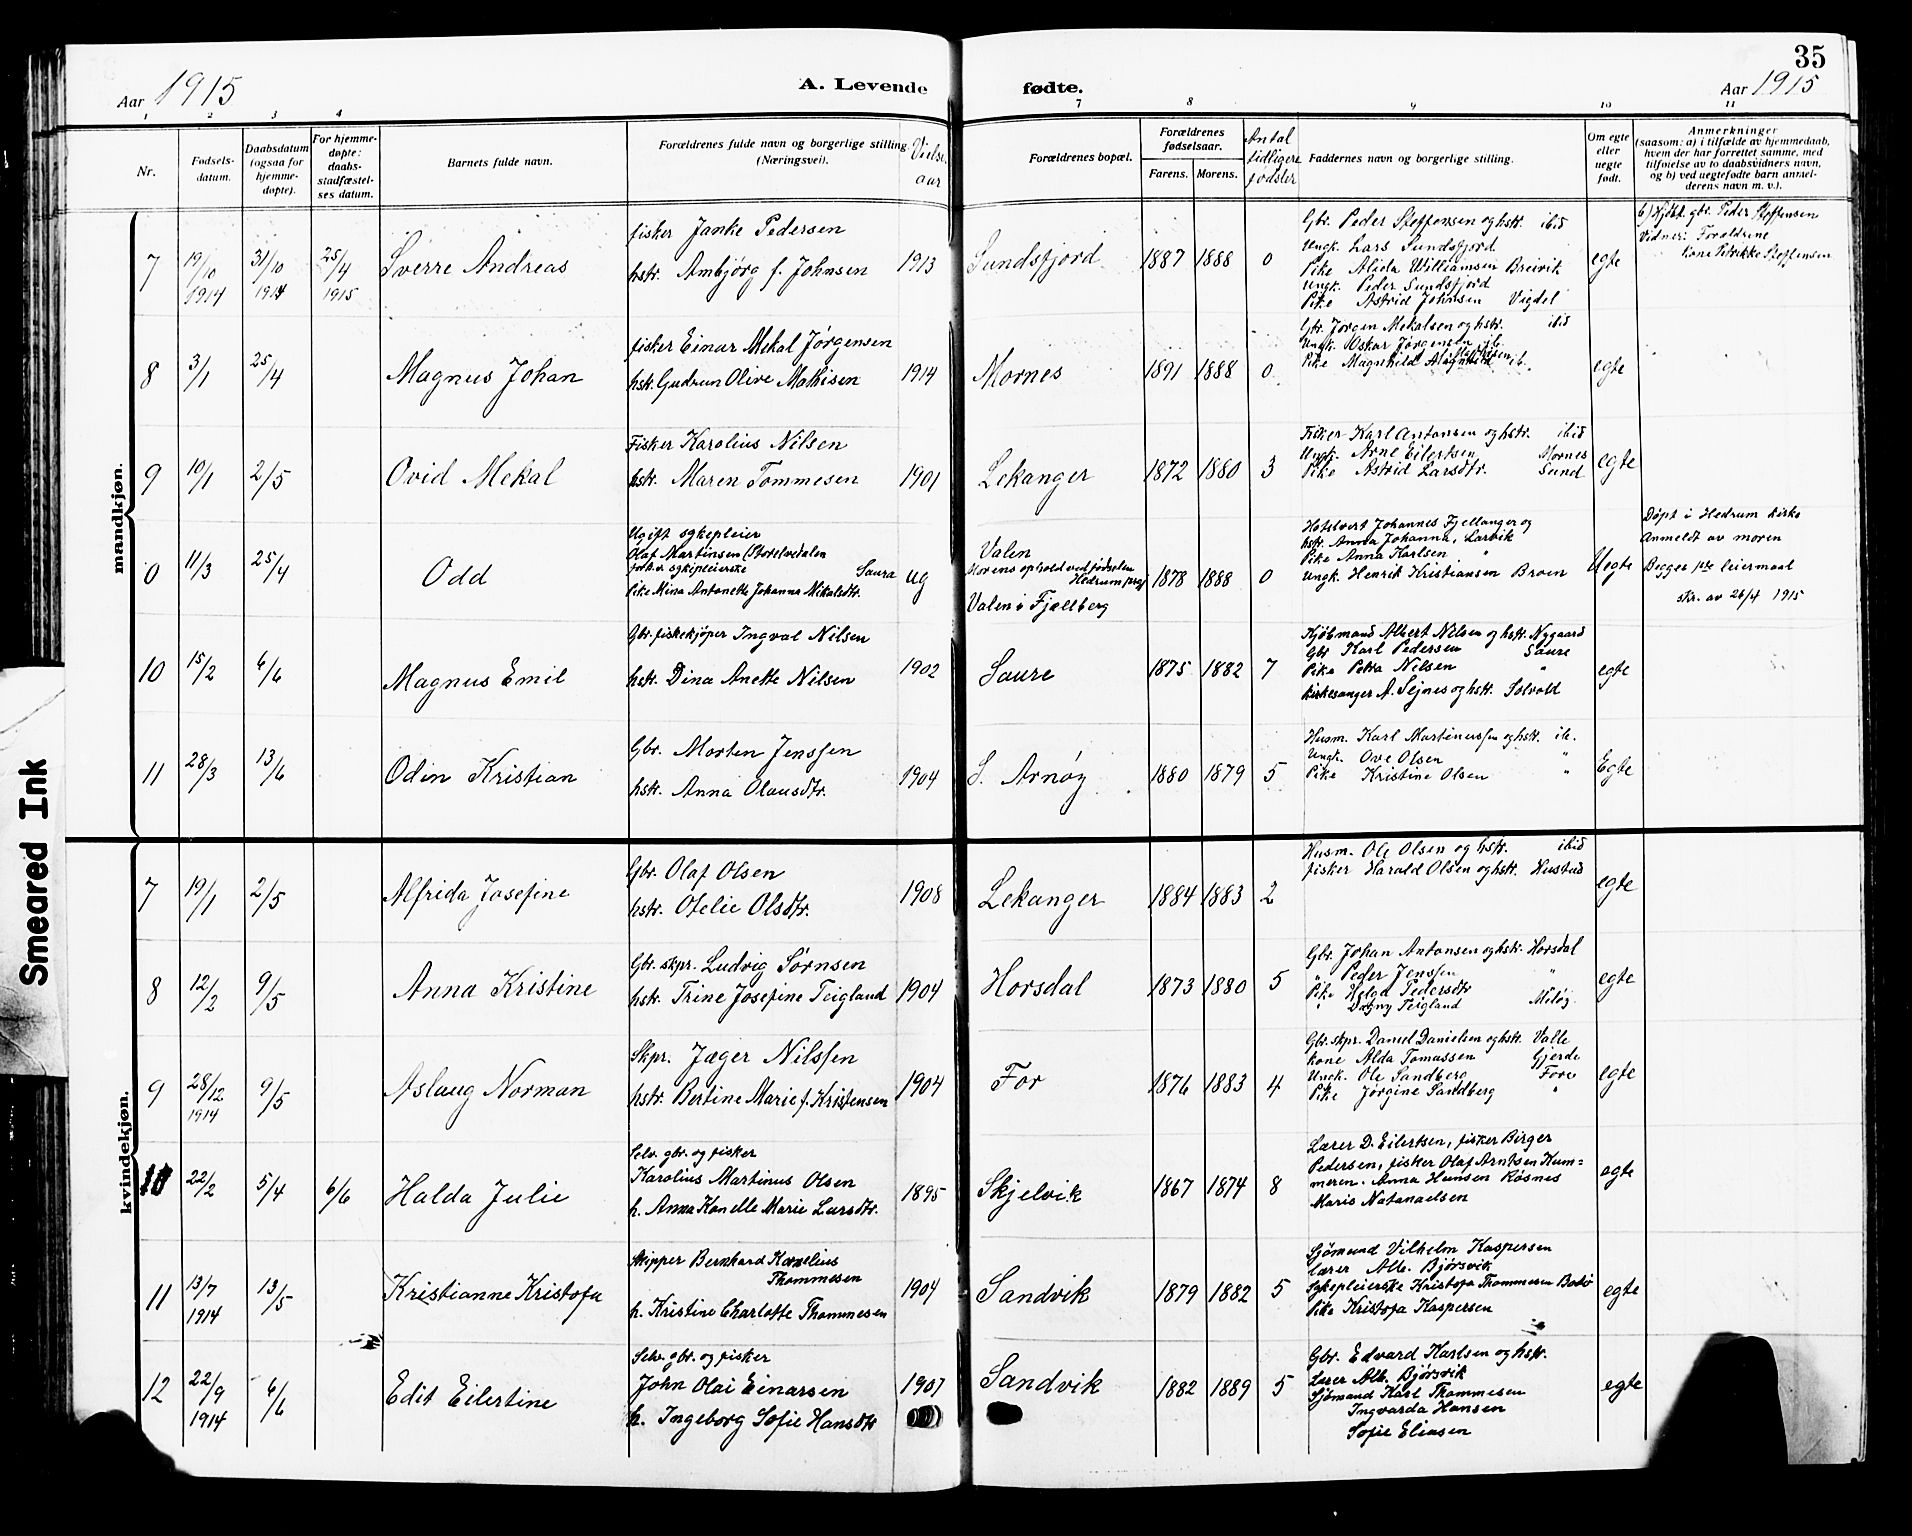 35
Aar 1915
A. Levende
fødte.
Aar 1915
1 2 3 4
7 8 9 10 11
Nr.
Fødsels-
datum.
Daabsdatum
(ogsaa for
hjemme-
døpte).
For hjemme-
døpte:
daabs-
stadfæstel-
ses datum.
Barnets fulde navn.
Forældrenes fulde navn og borgerlige stilling.
(Næringsvei).
Vielse
aar
Forældrenes bopæl.
Forældrenes
fødselsaar.
Farens. Morens.
Antal
tidligere
fødsler
Faddernes navn og borgerlige stilling.
Om egte
eller
uegte
født.
Anmerkninger
(saasom: a) i tilfælde av hjemmedaab,
hvem der har forrettet samme, med
tilføielse av to daabsvidners navn,
og b) ved uegtefødte barn anmel-
derens navn m. v.).
mandkjøn.
7
19/10
1914
31/10
1914
25/4
1915
Sverre Andreas
fisker Janke Pedersen
hstr. Ambjørg f. Johnsen
1913
Sundsfjord
1887 1888 0
Gbr. Peder Steffensen og hstr. ibid
Ungk. Lars Sundsfjord
Pike Alida Williamsen Breivik
Ungk. Peder Sundsfjord
Pike Astrid Johnsen Vigdel
egte
Hjdøt. gbr. Peder Steffensen
Vidner: Forældrene
Kone Petrikke Steffensen
8
3/1
25/4
Magnus Johan
fisker Einar Mekal Jørgensen
hstr. Gudrun Olive Mathisen
1914
Mornes
1891 1888 0
Gbr. Jørgen Mekalsen og hstr. ibid
Ungk. Oskar Jørgensen ib.
Pike Magnhild ib.
egte
9
10/1
2/5
Ovid Mekal
Fisker Karolius Nilsen
hstr. Maren Tommesen
1901
Lekanger
1872 1880 3
Fisker Karl Antonsen og hstr. ibid
Ungk. Arne Eilertsen Mornes
Pike Astrid Larsdtr. Sund
egte
0
11/3
25/4
Odd
Ugift sykepleier
Olaf Martinsen (Storelvedalen
forh.v. sykepleierske Saura
Pike Mina Antonette Johanna Nikolsdtr.
ug
Valen
Morens ophold ved fødselen
Hedrum prgj
Valen i Fjællberg
1878 1888 0
Hotelvert Johannes Fjellanger og
hstr. Anna Johanna, Larvik
Pike Anna Karlsen "
Ungk. Henrik Kristiansen Broen
Uegte
Døpt i Hedrum kirke
Anmeldt av moren
Begges 1ste leiermaal
skr. av 26/4 1915
10
15/2
6/6
Magnus Emil
Gbr. fiskekjøper Ingval Nilsen
hstr. Dina Anette Nilsen
1902
Saure
1875 1882 7
Kjøbmand Albert Nilsen og hstr. Nygaard
Gbr Karl Pedersen Saure
Pike Petra Nilsen "
Kirkesanger A. Sejnes og hstr. Solvold
egte
11
28/3
13/6
Odin Kristian
Gbr. Morten Jenssen
hstr. Anna Olausdtr.
1904
S. Arnøy
1880 1879 5
Husm. Karl Martinussen og hstr. ib.
Ungk. Ove Olsen "
Pike Kristine Olsen "
Egte
kvindekjøn.
7
19/1
2/5
Alfrida Josefine
Gbr. Olaf Olsen
hstr. Ofelie Olsdtr.
1908
Lekanger
1884 1883 2
Husm. Ole Olsen og hstr. ibid
fisker Harald Olsen og hstr. Hustad
egte
8
12/2
9/5
Anna Kristine
Gbr. skpr. Ludvig Sørnsen
hstr. Trine Josefine Teigland
1904
Horsdal
1873 1880 5
Gbr. Johan Antonsen og hstr. Horsdal
" Peder Jenssen "
Pike Helga Pedersdtr
" Dagny Teigland Meløy
egte
9
28/12
1914
9/5
Aslaug Norman
Skpr. Jæger Nilssen
hstr. Bertine Marie f. Kristensen
1904
For
1876 1883 4
Gbr. skpr. Daniel Danielsen og hstr. Valle
kone Alda Tomassen Gjerde
Ungk. Ole Sandberg Fore
Pike Jørgine Sandberg "
egte
10
22/2
5/4
6/6
Halda Julie
Selv. gbr. og fisker
Karolius Martinus Olsen
h. Anna Kanelle Marie Larsdtr.
1895
Skjelvik
1867 1874 8
Lærer D. Eilertsen, fisker Birger
Pedersen, fisker Olaf Arntsen Kum=
meren. Anna Hansen Røsnes
Marie Natanaelsen
egte
11
13/7
1914
13/5
Kristianne Kristofa
Skipper Bernhard Kornelius
Thommesen
h. Kristine Charlotte Thommesen
1904
Sandvik
1879 1882 5
Sjømand Vilhelm Kaspersen
lærer Alb. Bjørsvik
Sykepleierske Kristofa Thommesen Bodø
Pike Kristofa Kaspersen
egte
12
22/9
1914
6/6
Edit Eilertine
Selv. gbr. og fisker
John Olai Einarsen
h. Ingeborg Sofie Hansdtr
1907
Sandvik
1882 1889 5
Gbr. Edvard Karlsen og hstr.
Lærer Alb. Bjørsvik
Sjømand Karl Thommesen
Ingvarda Hansen
Sofie Eliasen
egte
Smeared Ink